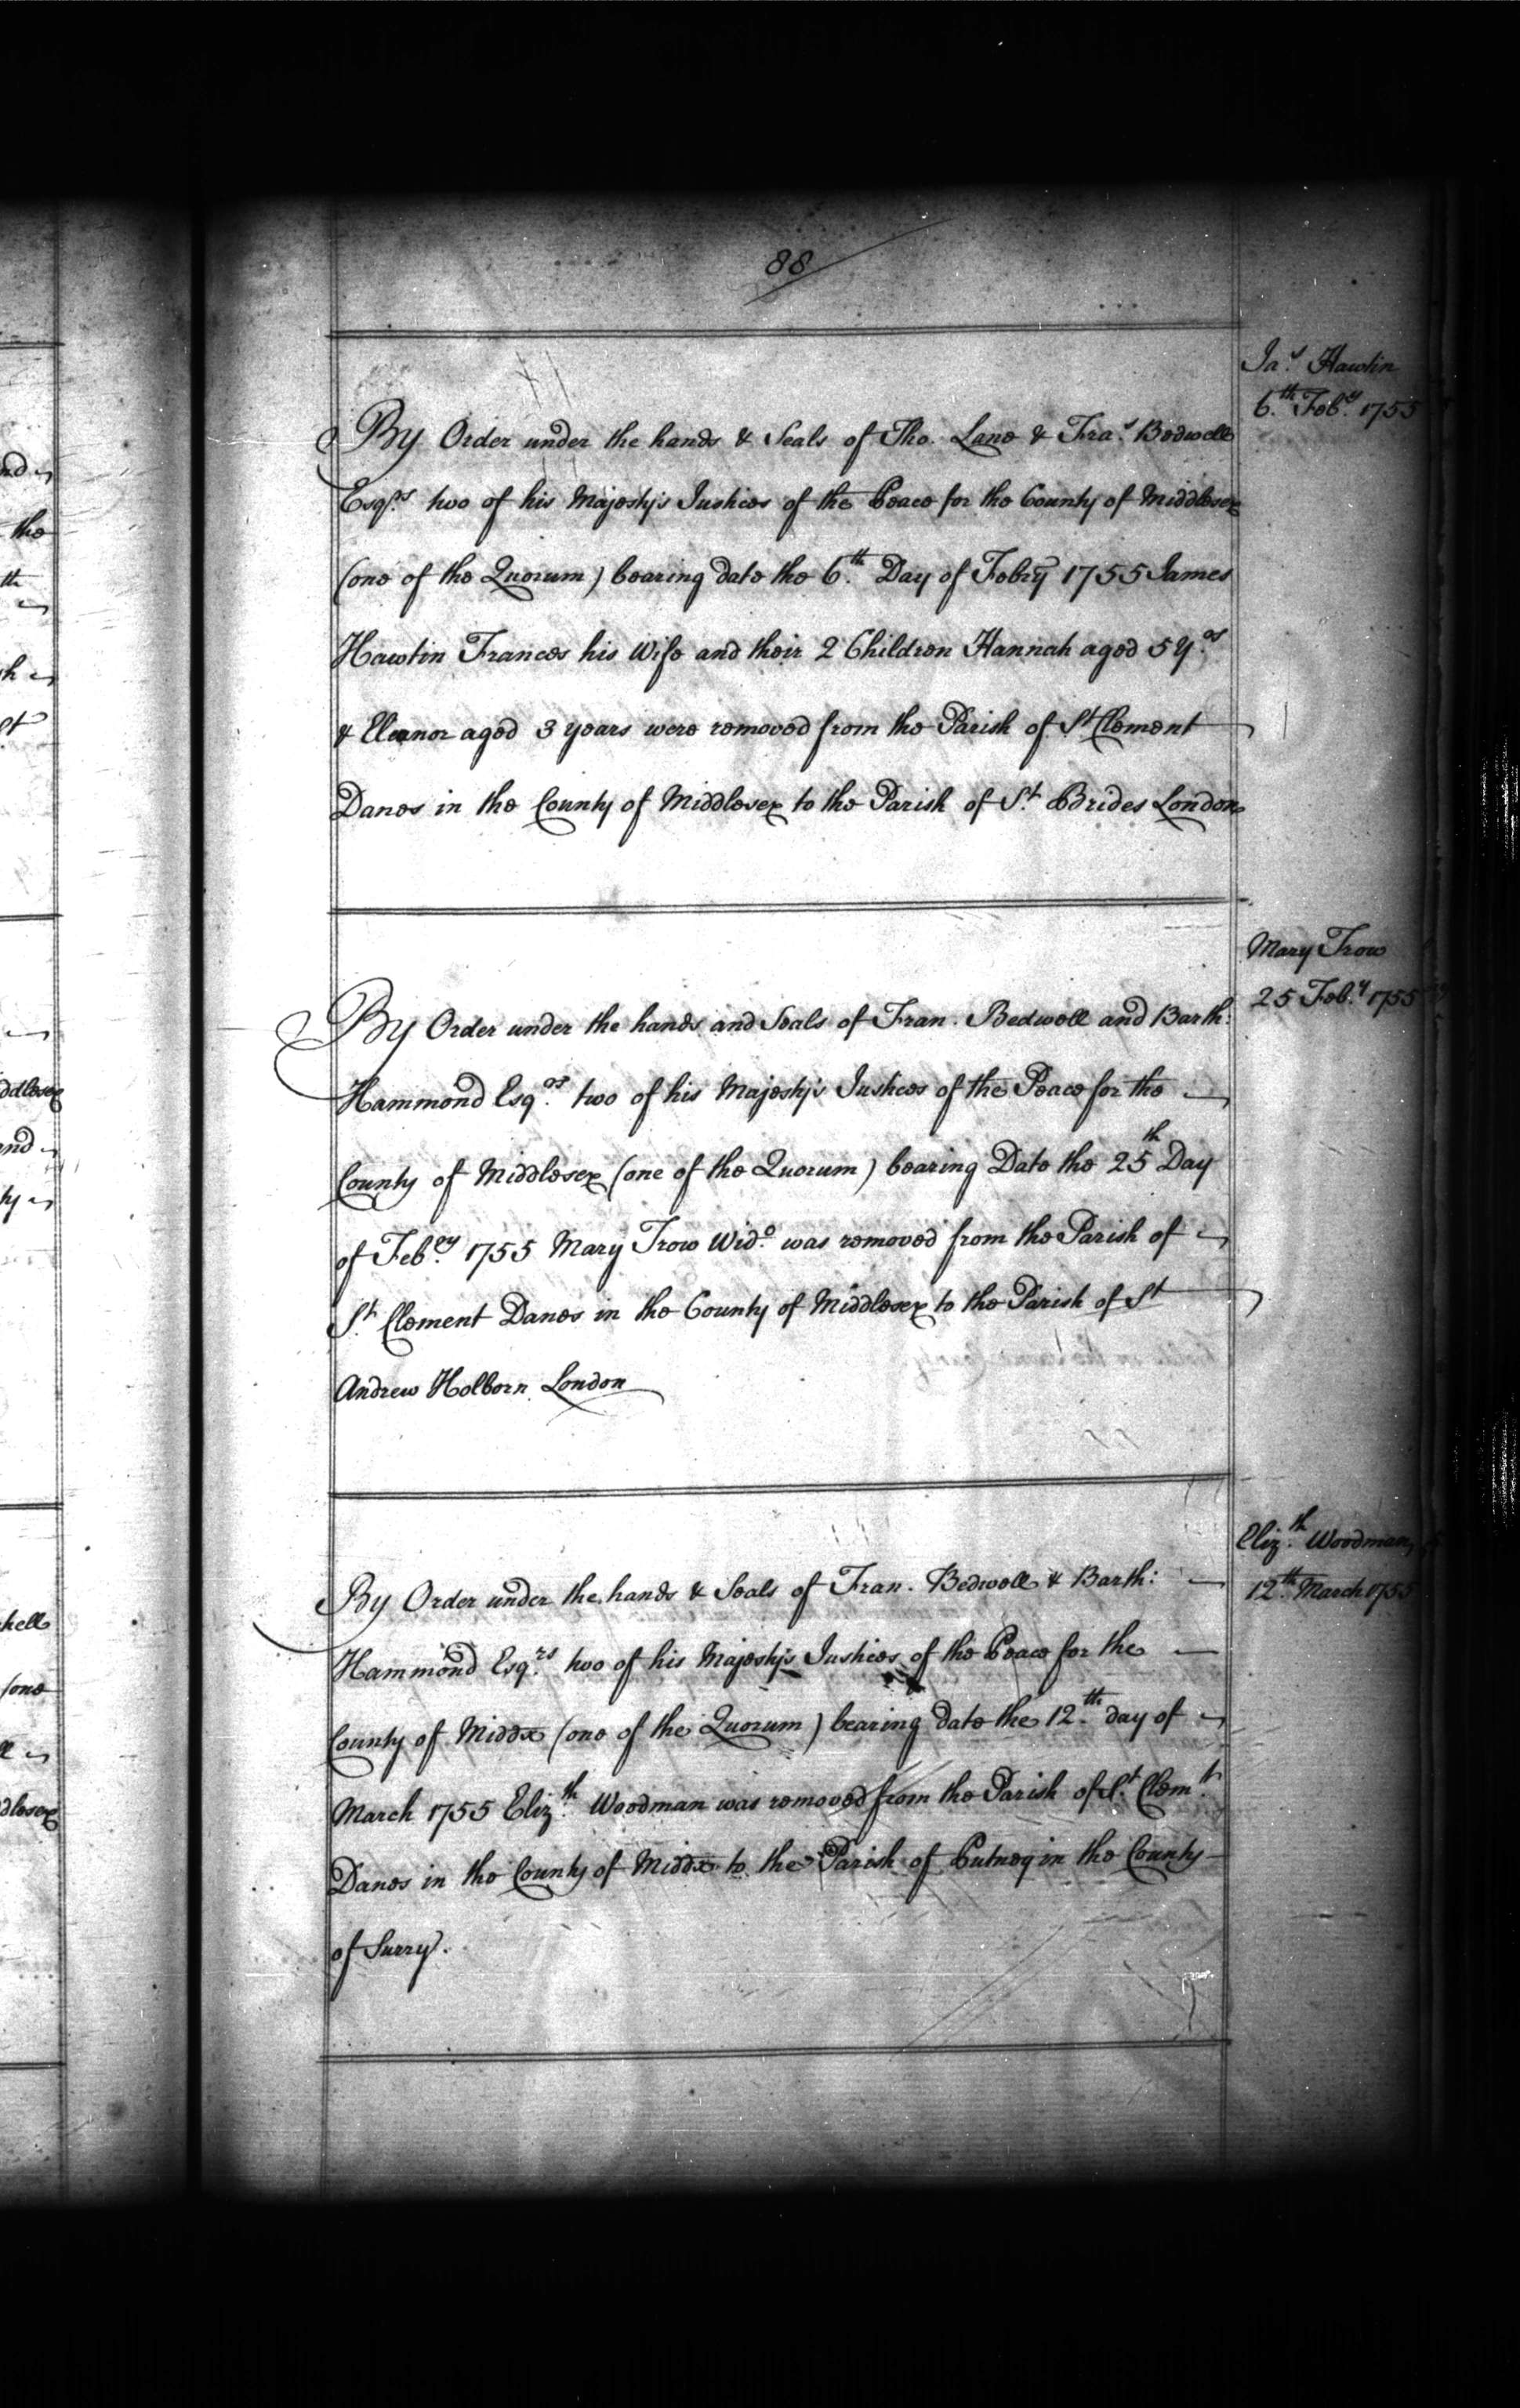 88
Jas. Hawtin
6th. Feby. 1755
By Order under the hands & Seals of Tho. Lane & Fras. Bedwell
Esqrs. two of his Majesty's Justices of the Peace for the County of Middlesex
(one of the Quorum) bearing date the 6th. Day of Febry 1755 James
Hawtin Frances his Wife and their 2 Children Hannah aged 5 Yrs.
& Eleanor aged 3 years were removed from the Parish of St Clement
Danes in the County of Middlesex to the Parish of St. Brides London
Mary Trow
25 Feby. 1755
By Order under the hands and Seals of Fran. Bedwell and Barth:
Hammond Esqrs. two of his Majesty's Justices of the Peace for the
County of Middlesex (one of the Quorum) bearing Date the 25th Day
of Febry. 1755 Mary Trow Wido. was removed from the Parish of
St. Clement Danes in the County of Middlesex to the Parish of St
Andrew Holborn London
Elizth. Woodman
12th. March 1755
By Order under the hands & Seals of Fran. Bedwell & Barth:
Hammond Esqrs. two of his Majesty's Justices of the Peace for the
County of Middx (one of the Quorum) bearing date the 12th. day of
March 1755 Elizth. Woodman was removed from the Parish of St. Clemt.
Danes in the County of Middx to the Parish of Putney in the County
of Surry.